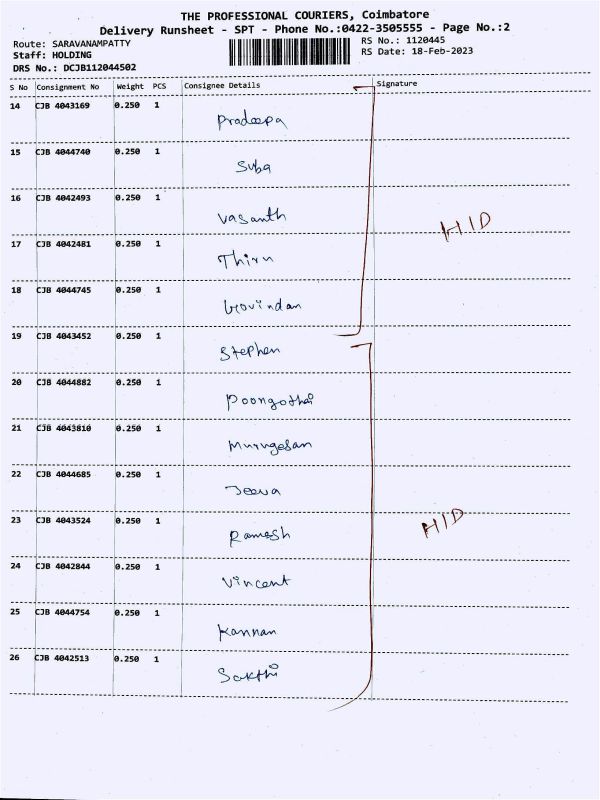 THE PROFESSIONAL COURIERS, Coimbatore
Delivery Runsheet - SPT - Phone No.:0422-3505555 - Page No.:2
Route: SARAVANAMPATTY RS No.: 1120445
Staff: HOLDING RS Date: 18-Feb-2023
DRS No.: DCJB112044502
S No Consignment No Weight PCS Consignee Details Signature
14 CJB 4043169 0.250 1
Pradeepa
15 CJB 4044740 0.250 1
Suba
16 CJB 4042493 0.250 1
Vasanth
H I D
17 CJB 4042481 0.250 1
Thiru
18 CJB 4044745 0.250 1
Govindan
19 CJB 4043452 0.250 1
Stephen
20 CJB 4044882 0.250 1
Poongothai
21 CJB 4043810 0.250 1
Murugesan
22 CJB 4044685 0.250 1
Jeeva
23 CJB 4043524 0.250 1
Ramesh
H I D
24 CJB 4042844 0.250 1
Vincent
25 CJB 4044754 0.250 1
Kannan
26 CJB 4042513 0.250 1
Sakthi